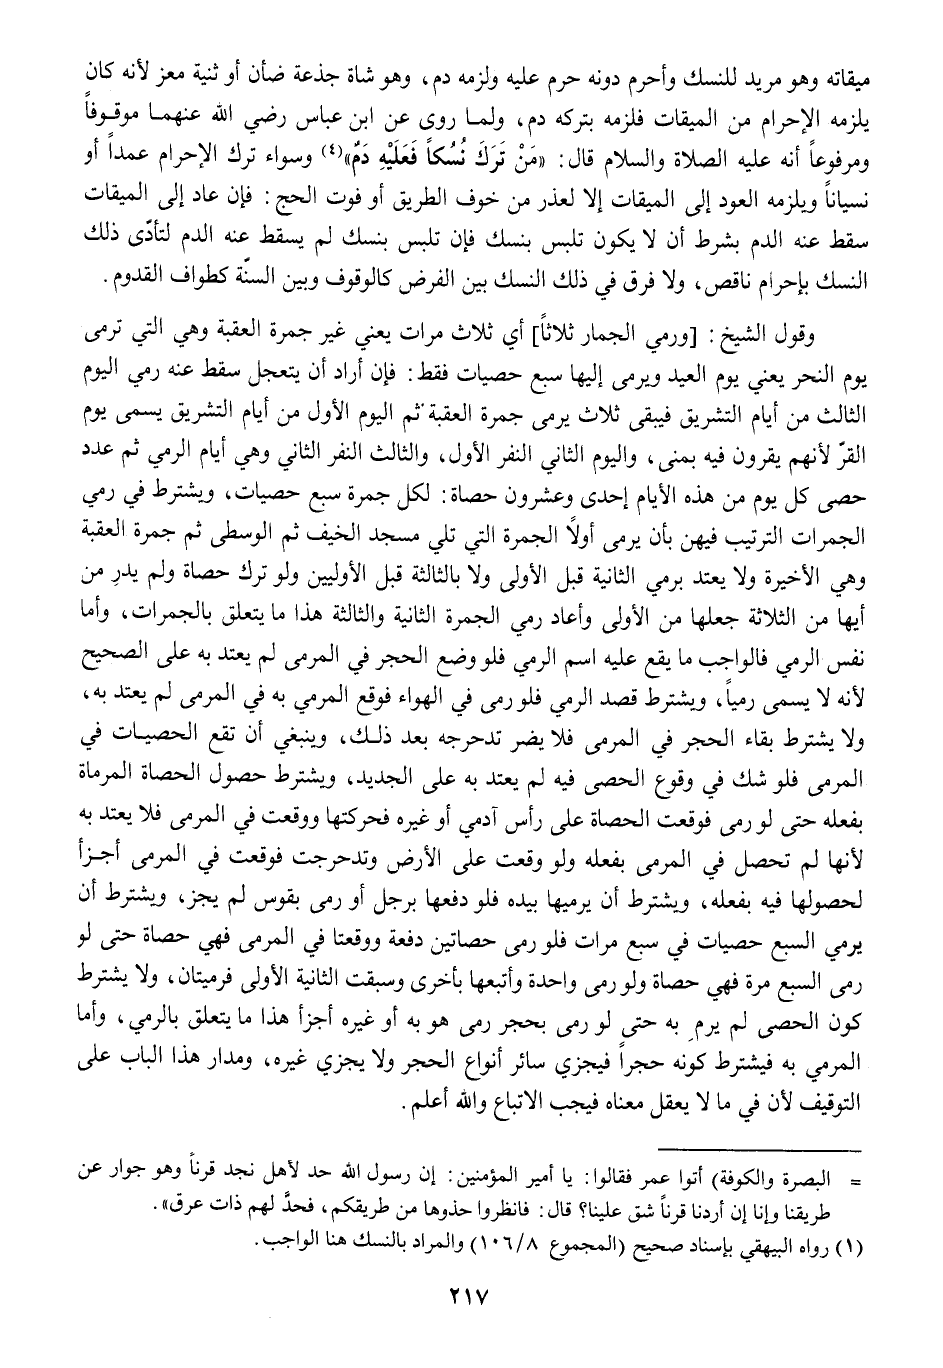 ميقاته وهو مريد للنسك وأحرم دونه حرم عليه ولزمه دم، وهو شاة جذعة ضأن أو ثنية معز لأنه كان
يلزمه الإحرام من الميقات فلزمه بتركه دم، ولمـا روى عن ابن عباس رضي الله عنهمـا موقـوفاً
ومرفوعاً أنه عليه الصلاة والسلام قال: «مَنْ تَرَكَ نُسُكاً فَعَلَيْهِ دَمٌ»(٤) وسواء ترك الإحرام عمداً أو
نسياناً ويلزمه العود إلى الميقات إلا لعذر من خوف الطريق أو فوت الحج: فإن عاد إلى الميقات
سقط عنه الدم بشرط أن لا يكون تلبس بنسك فإن تلبس بنسك لم يسقط عنه الدم لتأدّى ذلك
النسك بإحرام ناقص، ولا فرق في ذلك النسك بين الفرض كالوقوف وبين السنّة كطواف القدوم.
وقول الشيخ: [ورمي الجمار ثلاثاً] أي ثلاث مرات يعني غير جمرة العقبة وهي التي ترمى
يوم النحر يعني يوم العيد ويرمى إليها سبع حصيات فقط: فإن أراد أن يتعجل سقط عنه رمي اليوم
الثالث من أيام التشريق فيبقى ثلاث يرمى جمرة العقبة ثم اليوم الأول من أيام التشريق يسمى يوم
القرّ لأنهم يقرون فيه بمنى، واليوم الثاني النفر الأول، والثالث النفر الثاني وهي أيام الرمي ثم عدد
حصى كل يوم من هذه الأيام إحدى وعشرون حصاة: لكل جمرة سبع حصيات، ويشترط في رمي
الجمرات الترتيب فيهن بأن يرمى أولاً الجمرة التي تلي مسجد الخيف ثم الوسطى ثم جمرة العقبة
وهي الأخيرة ولا يعتد برمي الثانية قبل الأولى ولا بالثالثة قبل الأوليين ولو ترك حصاة ولم يدرِ من
أيها من الثلاثة جعلها من الأولى وأعاد رمي الجمرة الثانية والثالثة هذا ما يتعلق بالجمرات، وأما
نفس الرمي فالواجب ما يقع عليه اسم الرمي فلو وضع الحجر في المرمى لم يعتد به على الصحيح
لأنه لا يسمى رمياً، ويشترط قصد الرمي فلو رمى في الهواء فوقع المرمي به في المرمى لم يعتد به،
ولا يشترط بقاء الحجر في المرمى فلا يضر تدحرجه بعد ذلـك، وينبغي أن تقع الحصيـات في
المرمى فلو شك في وقوع الحصى فيه لم يعتد به على الجديد، ويشترط حصول الحصاة المرماة
بفعله حتى لو رمى فوقعت الحصاة على رأس آدمي أو غيره فحركتها ووقعت في المرمى فلا يعتد به
لأنها لم تحصل في المرمى بفعله ولو وقعت على الأرض وتدحرجت فوقعت في المرمى أجـزأ
لحصولها فيه بفعله، ويشترط أن يرميها بيده فلو دفعها برجل أو رمى بقوس لم يجز، ويشترط أن
يرمي السبع حصيات في سبع مرات فلو رمى حصاتين دفعة ووقعتا في المرمى فهي حصاة حتى لو
رمى السبع مرة فهي حصاة ولو رمى واحدة وأتبعها بأخرى وسبقت الثانية الأولى فرميتان، ولا يشترط
كون الحصى لم يرمِ به حتى لو رمى بحجر رمى هو به أو غيره أجزأ هذا ما يتعلق بالرمي، وأما
المرمي به فيشترط كونه حجراً فيجزي سائر أنواع الحجر ولا يجزي غيره، ومدار هذا الباب على
التوقيف لأن في ما لا يعقل معناه فيجب الاتباع والله أعلم.
= البصرة والكوفة) أتوا عمر فقالوا: يا أمير المؤمنين: إن رسول الله حد لأهل نجد قرناً وهو جوار عن
طريقنا وإنا إن أردنا قرناً شق علينا؟ قال: فانظروا حذوها من طريقكم، فحدَّ لهم ذات عرق».
(١) رواه البيهقي بإسناد صحيح (المجموع ١٠٦/٨) والمراد بالنسك هنا الواجب.
٢١٧